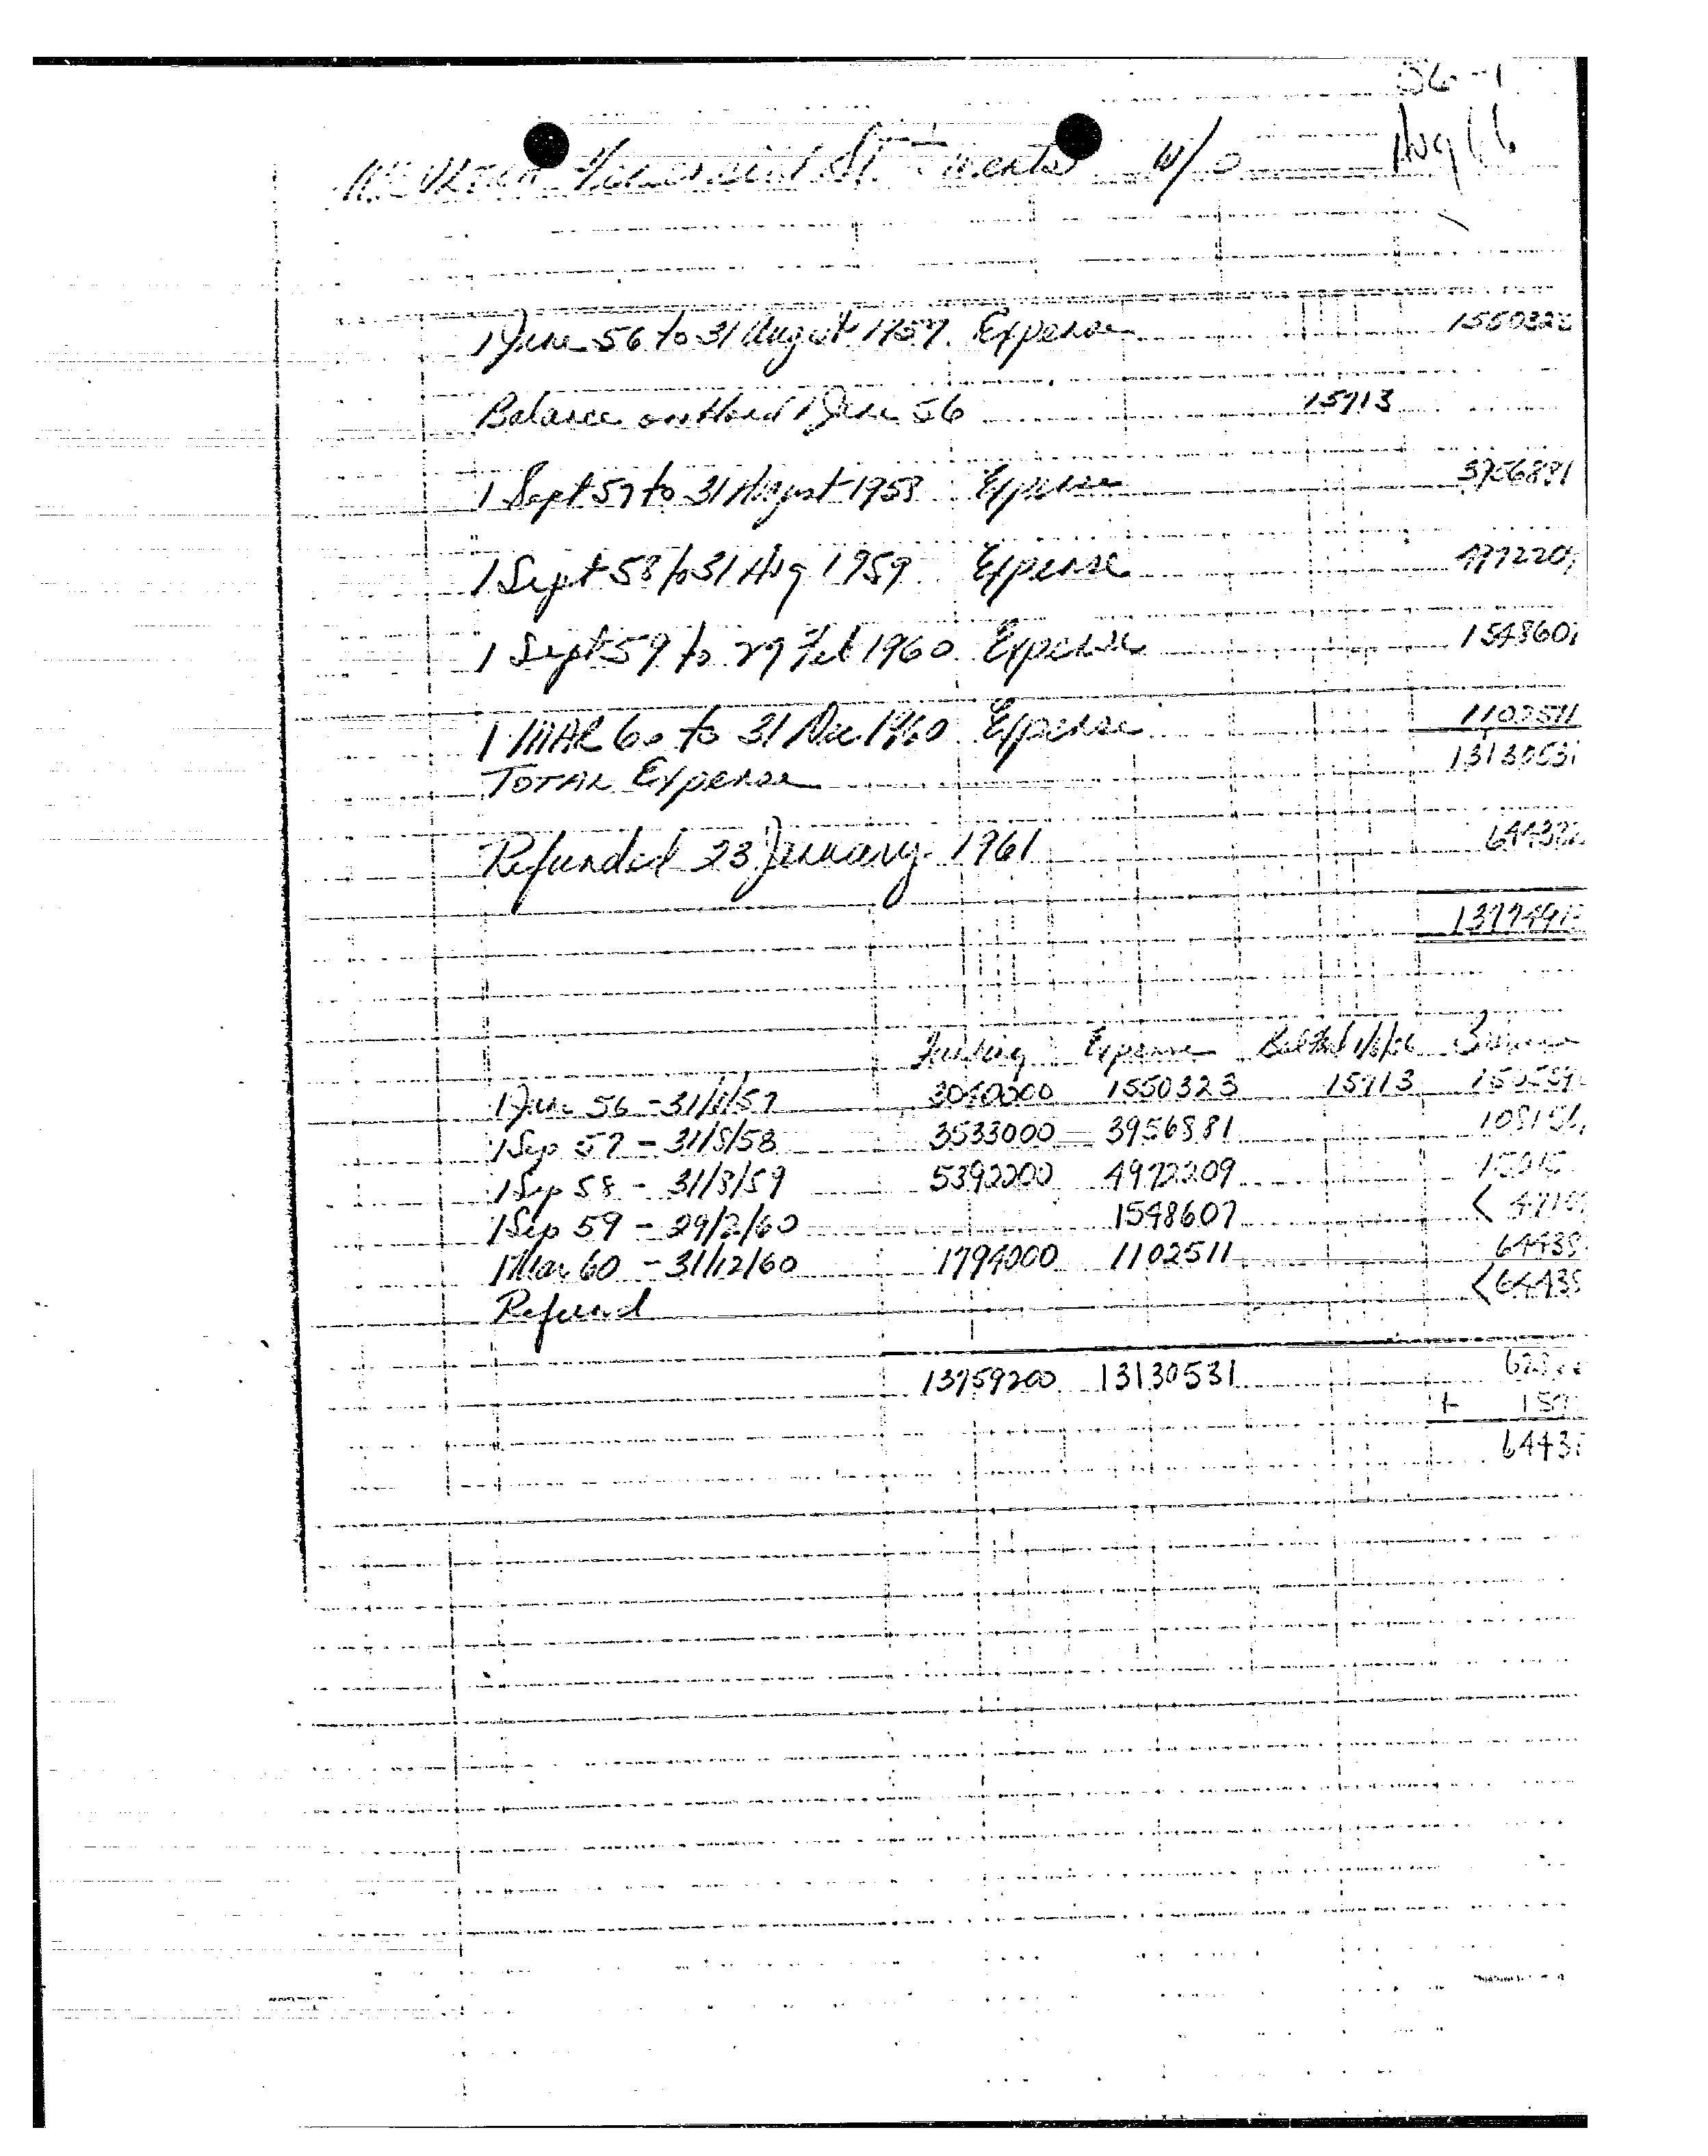 56-1
Aug 66
Financial Statements W/O
1 June 56 to 31 August 1957 Expense 1550323
Balance on Hand 1 June 56 15713
1 Sept 57 to 31 August 1958 Expense 3956881
1 Sept 58 to 31 Aug 1959 Expense 497220
1 Sept 59 to 29 Feb 1960 Expense 154860
1 MAR 60 to 31 Dec 1960 Expense 1102511
TOTAL Expense 1313053
Refunded 23 January 1961 64438
1377491
Funding Expense Bal Hnd 1/6/56 Balance
1 June 56 - 31/8/57 3040000 1550323 15713
1 Sep 57 - 31/8/58 3533000 3956881
1 Sep 58 - 31/8/59 5392200 4972209
1 Sep 59 - 29/2/60 1548607
1 Mar 60 - 31/12/60 1794000 1102511 64438
Refund <64438
13759200 13130531
6443